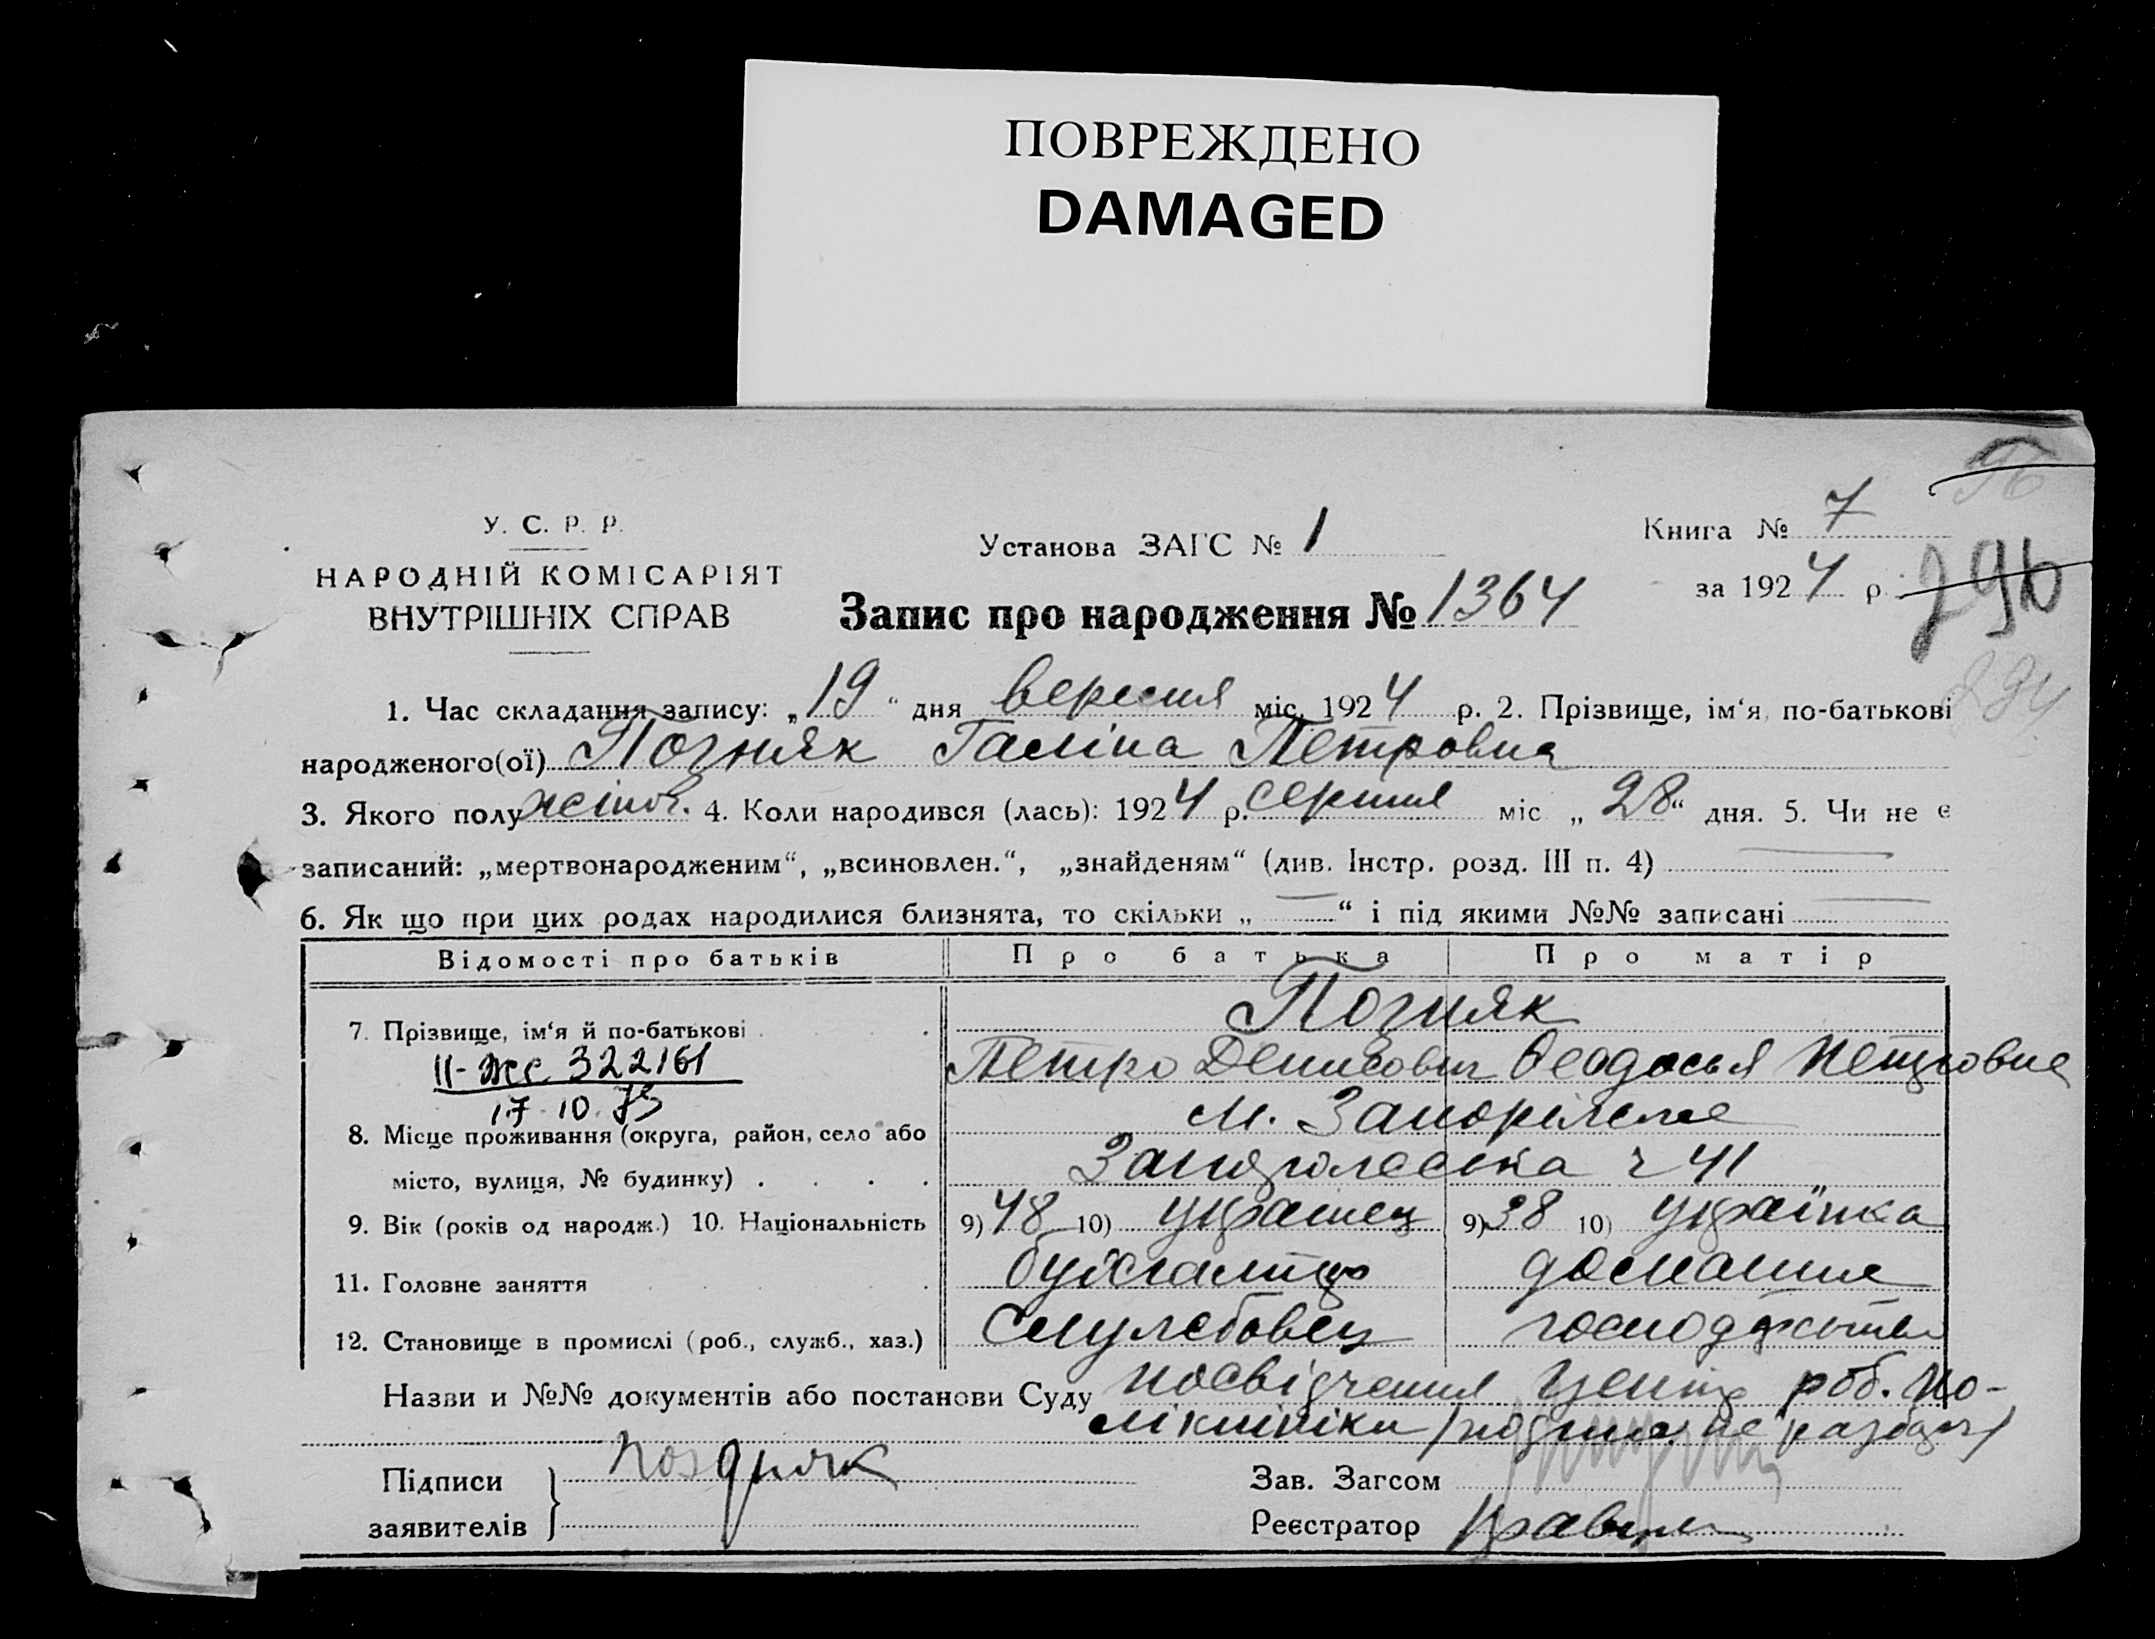 ПОВРЕЖДЕНО
DAMAGED
У. С. Р. Р.
НАРОДНІЙ КОМІСАРІЯТ
ВНУТРІШНІХ СПРАВ
Установа ЗАГС № 1
Книга № 7
за 1924 р.
296
294
Запис про народження № 1364
1. Час складання запису: „19“ дня вересня міс. 1924 р. 2. Прізвище, ім‘я, по-батькові
народженого(ої) Позняк Галіна Петровна
3. Якого полу жіноч. 4. Коли народився (лась): 1924 р. серпня міс „28“ дня. 5. Чи не є
записаний: „мертвонародженим“, „всиновлен.“, „знайденям“ (див. Інстр. розд. III п. 4)
6. Як що при цих родах народилися близнята, то скільки „ — “ і під якими №№ записані
Відомості про батьків Про батька Про матір
7. Прізвище, ім‘я й по-батькові Позняк
Петро Денисович Феодосья Петровна
II-жс 322161
17.10.73
8. Місце проживання (округа, район, село або м. Запоріжжє
місто, вулиця, № будинку) ч 41
9. Вік (років од народж.) 10. Національність 9) 48 10) українец 9) 38 10) українка
11. Головне заняття бухгалтер домашнє
12. Становище в промислі (роб., служб., хаз.) Служебовец господарство
Назви и №№ документів або постанови Суду посвідчення Центр роб. по-
лікліники /подпис не разборч/
Підписи
заявителів } Поздняк
Зав. Загсом
Реєстратор